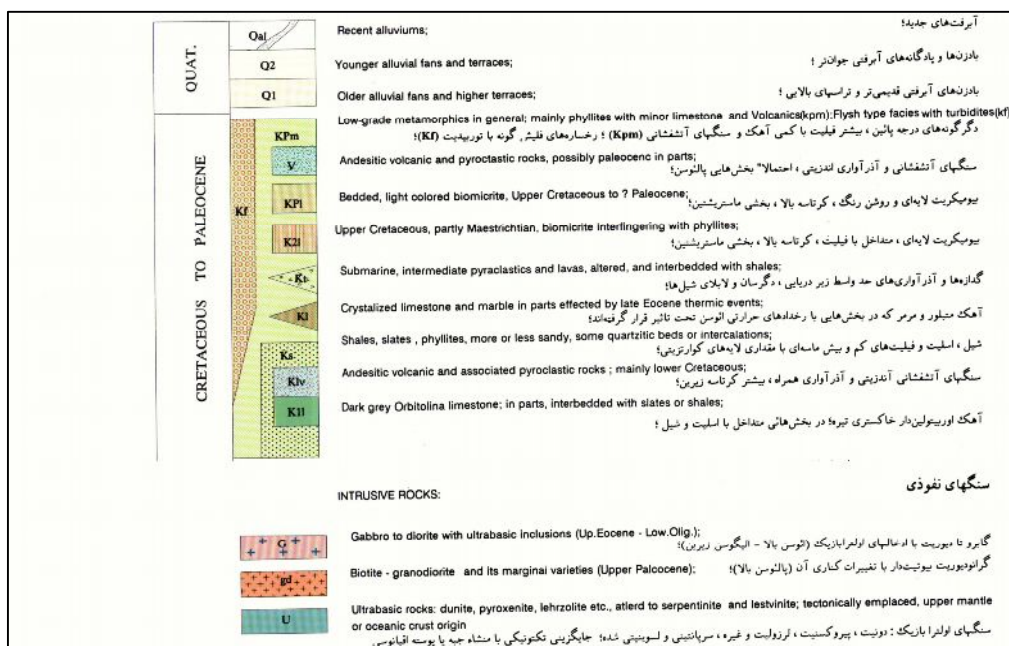 QUAT.
CRETACEOUS TO PALEOCENE
Qal
Recent alluviums;
آبرفت‌های جدید؛
Q2
Younger alluvial fans and terraces;
بادزن‌ها و پادگانه‌های آبرفتی جوان‌تر ؛
Q1
Older alluvial fans and higher terraces;
بادزن‌های آبرفتی قدیمی‌تر و تراسهای بالایی ؛
Low-grade metamorphics in general; mainly phyllites with minor limestone and Volcanics(kpm):Flysh type facies with turbidites(kf)
KPm
دگرگونه‌های درجه پائین ، بیشتر فیلیت با کمی آهک و سنگهای آتشفشانی (Kpm) ؛ رخساره‌های فلیش گونه با توربیدیت (Kf)؛
V
Andesitic volcanic and pyroctastic rocks, possibly paleocenc in parts;
سنگهای آتشفشانی و آذرآواری اندزیتی ، احتمالا" بخش‌هایی پالئوسن؛
Kf
KPl
Bedded, light colored biomicrite, Upper Cretaceous to ? Paleocene;
بیومیکریت لایه‌ای و روشن رنگ ، کرتاسه بالا ، بخشی ماستریشتین؛
K2l
Upper Cretaceous, partly Maestrichtian, biomicrite interfingering with phyllites;
بیومیکریت لایه‌ای ، متداخل با فیلیت ، کرتاسه بالا ، بخشی ماستریشتین؛
Kt
Submarine, intermediate pyraclastics and lavas, altered, and interbedded with shales;
گدازه‌ها و آذرآواری‌های حد واسط زیر دریایی ، دگرسان و لابلای شیل‌ها؛
Kl
Crystalized limestone and marble in parts effected by late Eocene thermic events;
آهک متبلور و مرمر که در بخش‌هایی با رخدادهای حرارتی ائوسن تحت تاثیر قرار گرفته‌اند؛
Ks
Shales, slates , phyllites, more or less sandy, some quartzitic beds or intercalations;
شیل ، اسلیت و فیلیت‌های کم و بیش ماسه‌ای با مقداری لایه‌های کوارتزیتی؛
Klv
Andesitic volcanic and associated pyroclastic rocks ; mainly lower Cretaceous;
سنگهای آتشفشانی آندزیتی و آذرآواری همراه ، بیشتر کرتاسه زیرین؛
K1l
Dark grey Orbitolina limestone; in parts, interbedded with slates or shales;
آهک اوربیتولین‌دار خاکستری تیره؛ در بخش‌هائی متداخل با اسلیت و شیل ؛
سنگهای نفوذی
INTRUSIVE ROCKS:
G
Gabbro to diorite with ultrabasic inclusions (Up.Eocene - Low.Olig.);
گابرو تا دیوریت با ادخالهای اولترابازیک (ائوسن بالا - الیگوسن زیرین)؛
gd
Biotite - granodiorite and its marginal varieties (Upper Palcocene);
گرانودیوریت بیوتیت‌دار با تغییرات کناری آن (پالئوسن بالا)؛
U
Ultrabasic rocks: dunite, pyroxenite, lehrzolite etc., atlerd to serpentinite and lestvinite; tectonically emplaced, upper mantle
or oceanic crust origin
سنگهای اولترا بازیک : دونیت ، پیروکسنیت ، لرزولیت و غیره ، سرپانتینی و لسوینیتی شده؛ جایگزینی تکتونیکی با منشاء جبه یا پوسته اقیانوسی